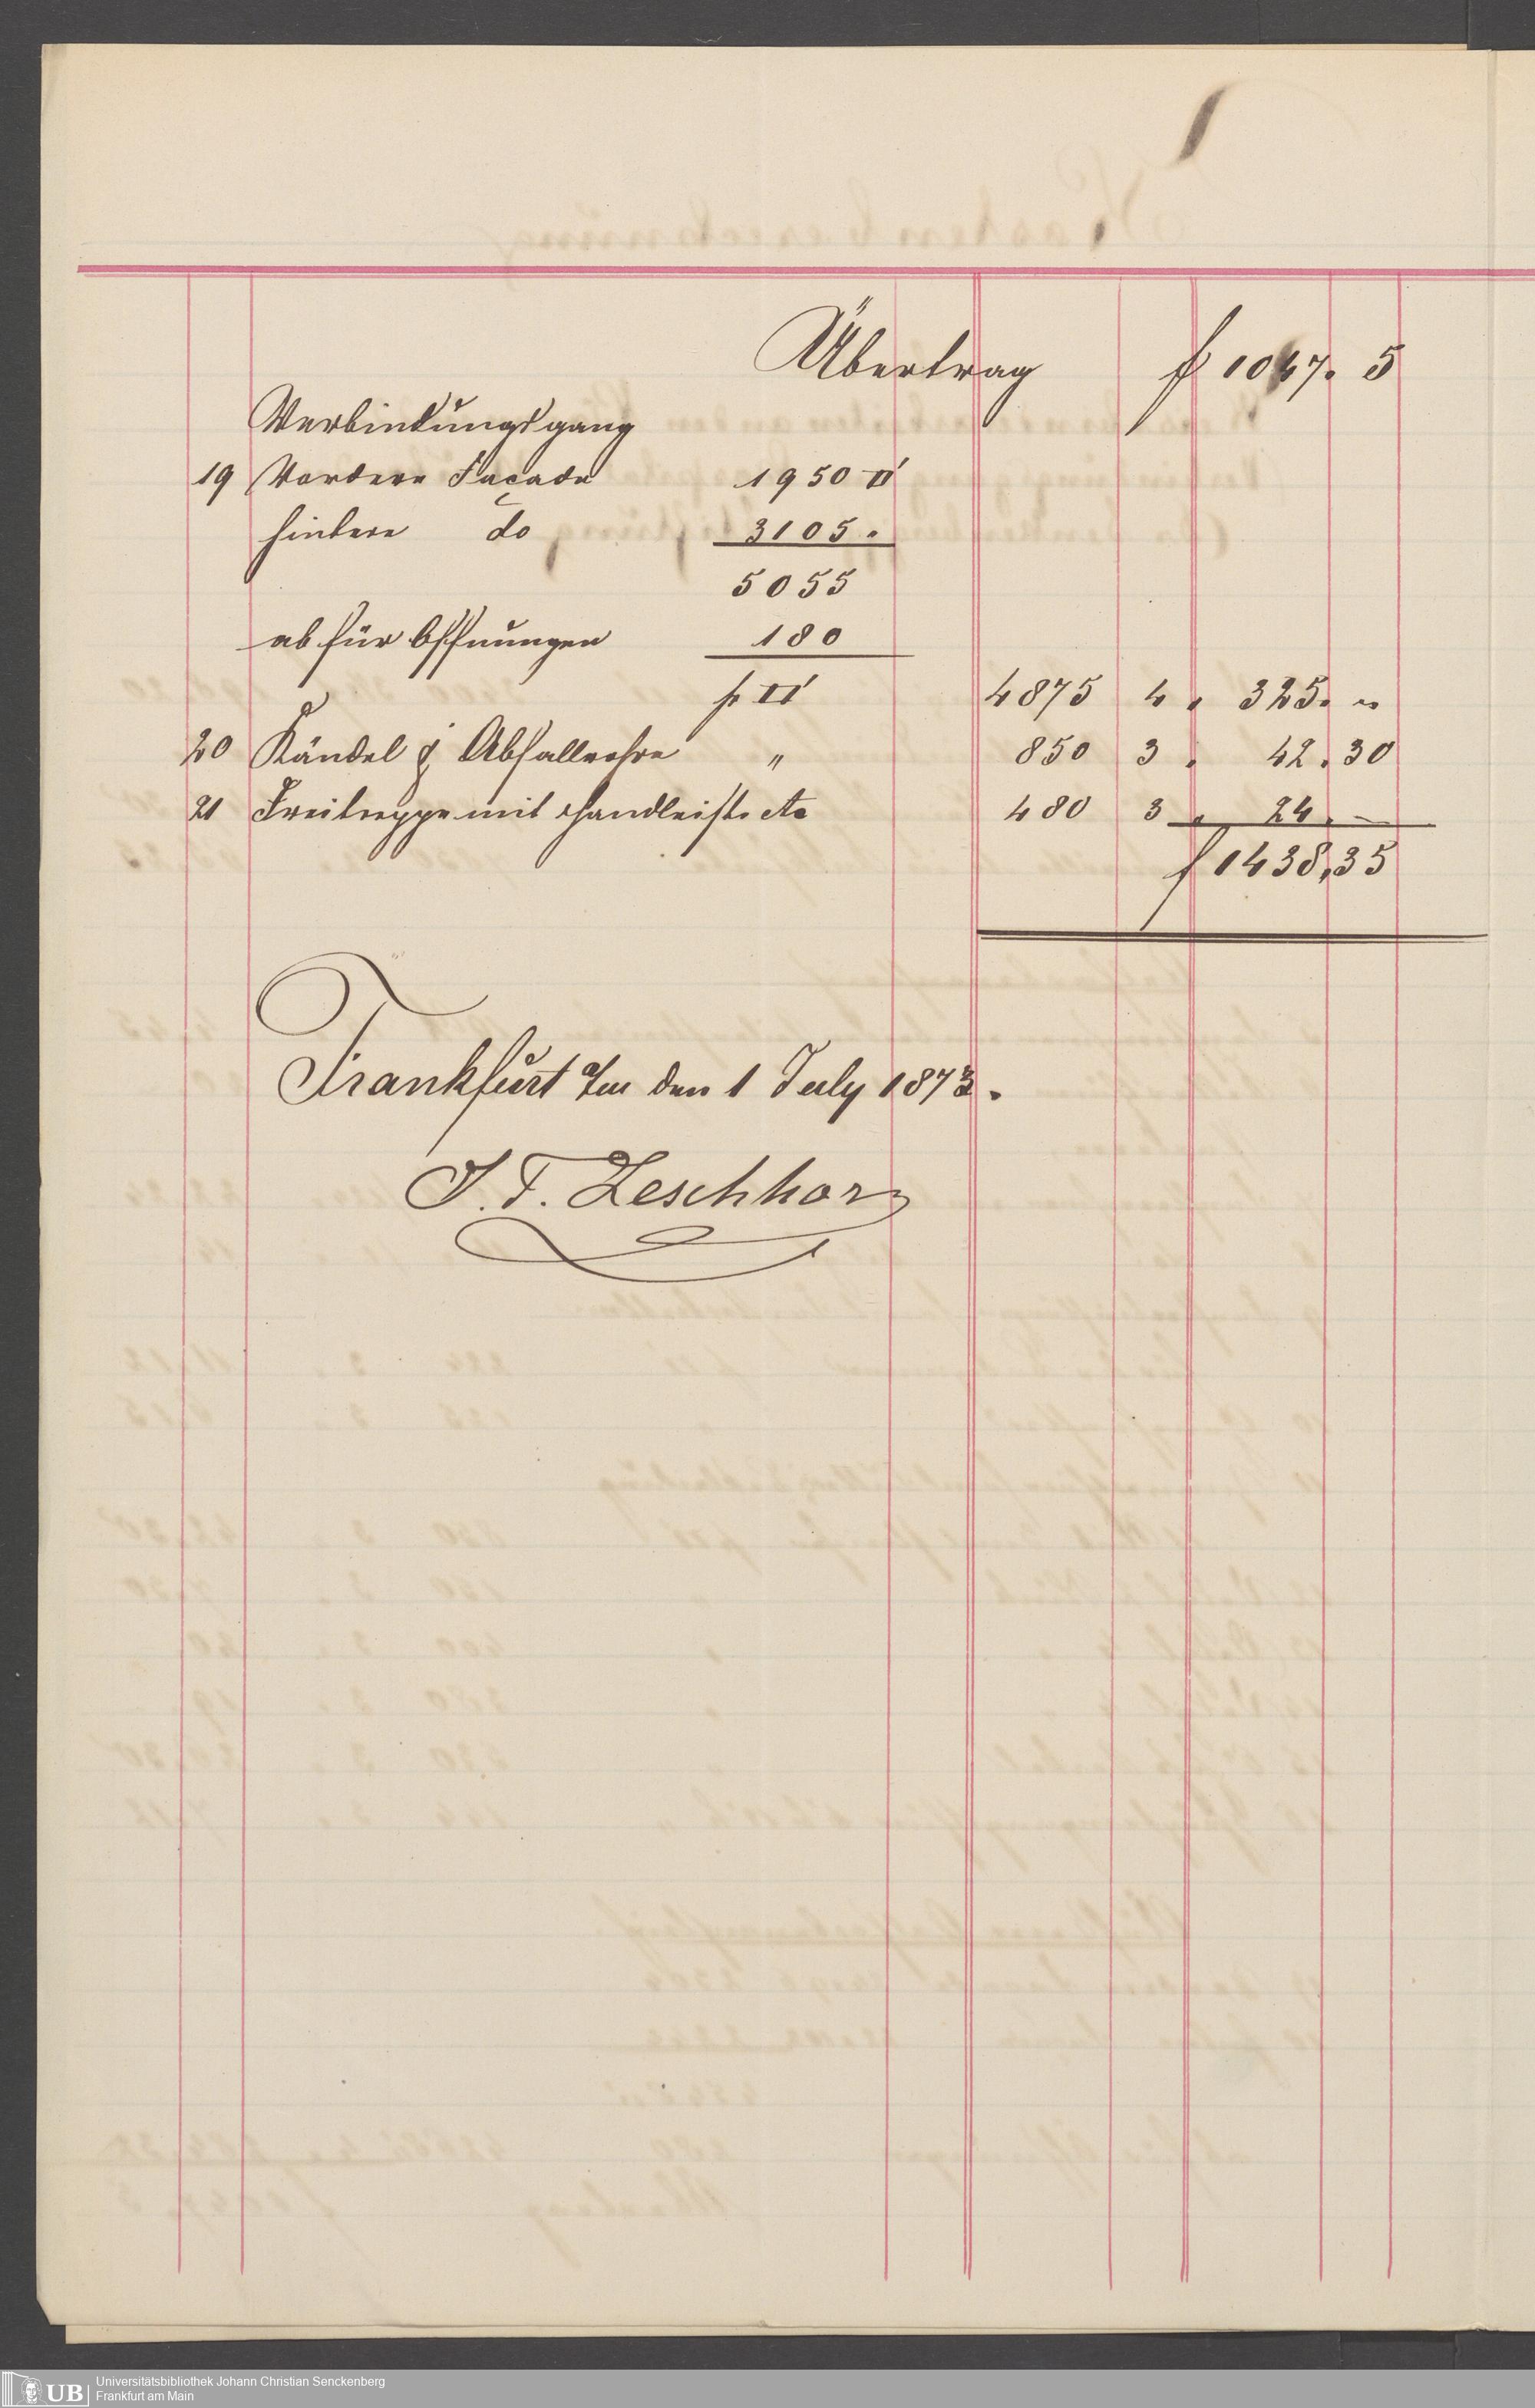 Übertrag f 1047. 5
Verbindungsgang
19 Vordere Façade 1950 □'
hintere do 3105 .
5055
ab für Öffnungen 180
pr □' 4875 4 „ 325. „
20 Kändel & Abfallrohre " 850 3 „ 42. 30
21 Freitreppe mit Handleiste etc 480 3 „ 24. —
f 1438,35
Frankfurt a/m den 1 July 1873.
J. F. Zeschhorn
UB
Universitätsbibliothek Johann Christian Senckenberg
Frankfurt am Main